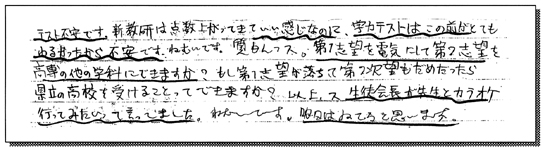 テスト不安です。新教研は点数上がってきていい感じなのに、学力テストはこの前がとても
悪かったから不安です。ねむいです。質もんっス。第1志望を電気にして第2志望を
高専の他の学科にできますか?もし第1志望が落ちて第2次望もだめだったら
県立の高校を受けることってできますか?以上っス 生徒会長が先生とカラオケ
行ってみたいって言ってました。ねむいです。明日はねてると思います。